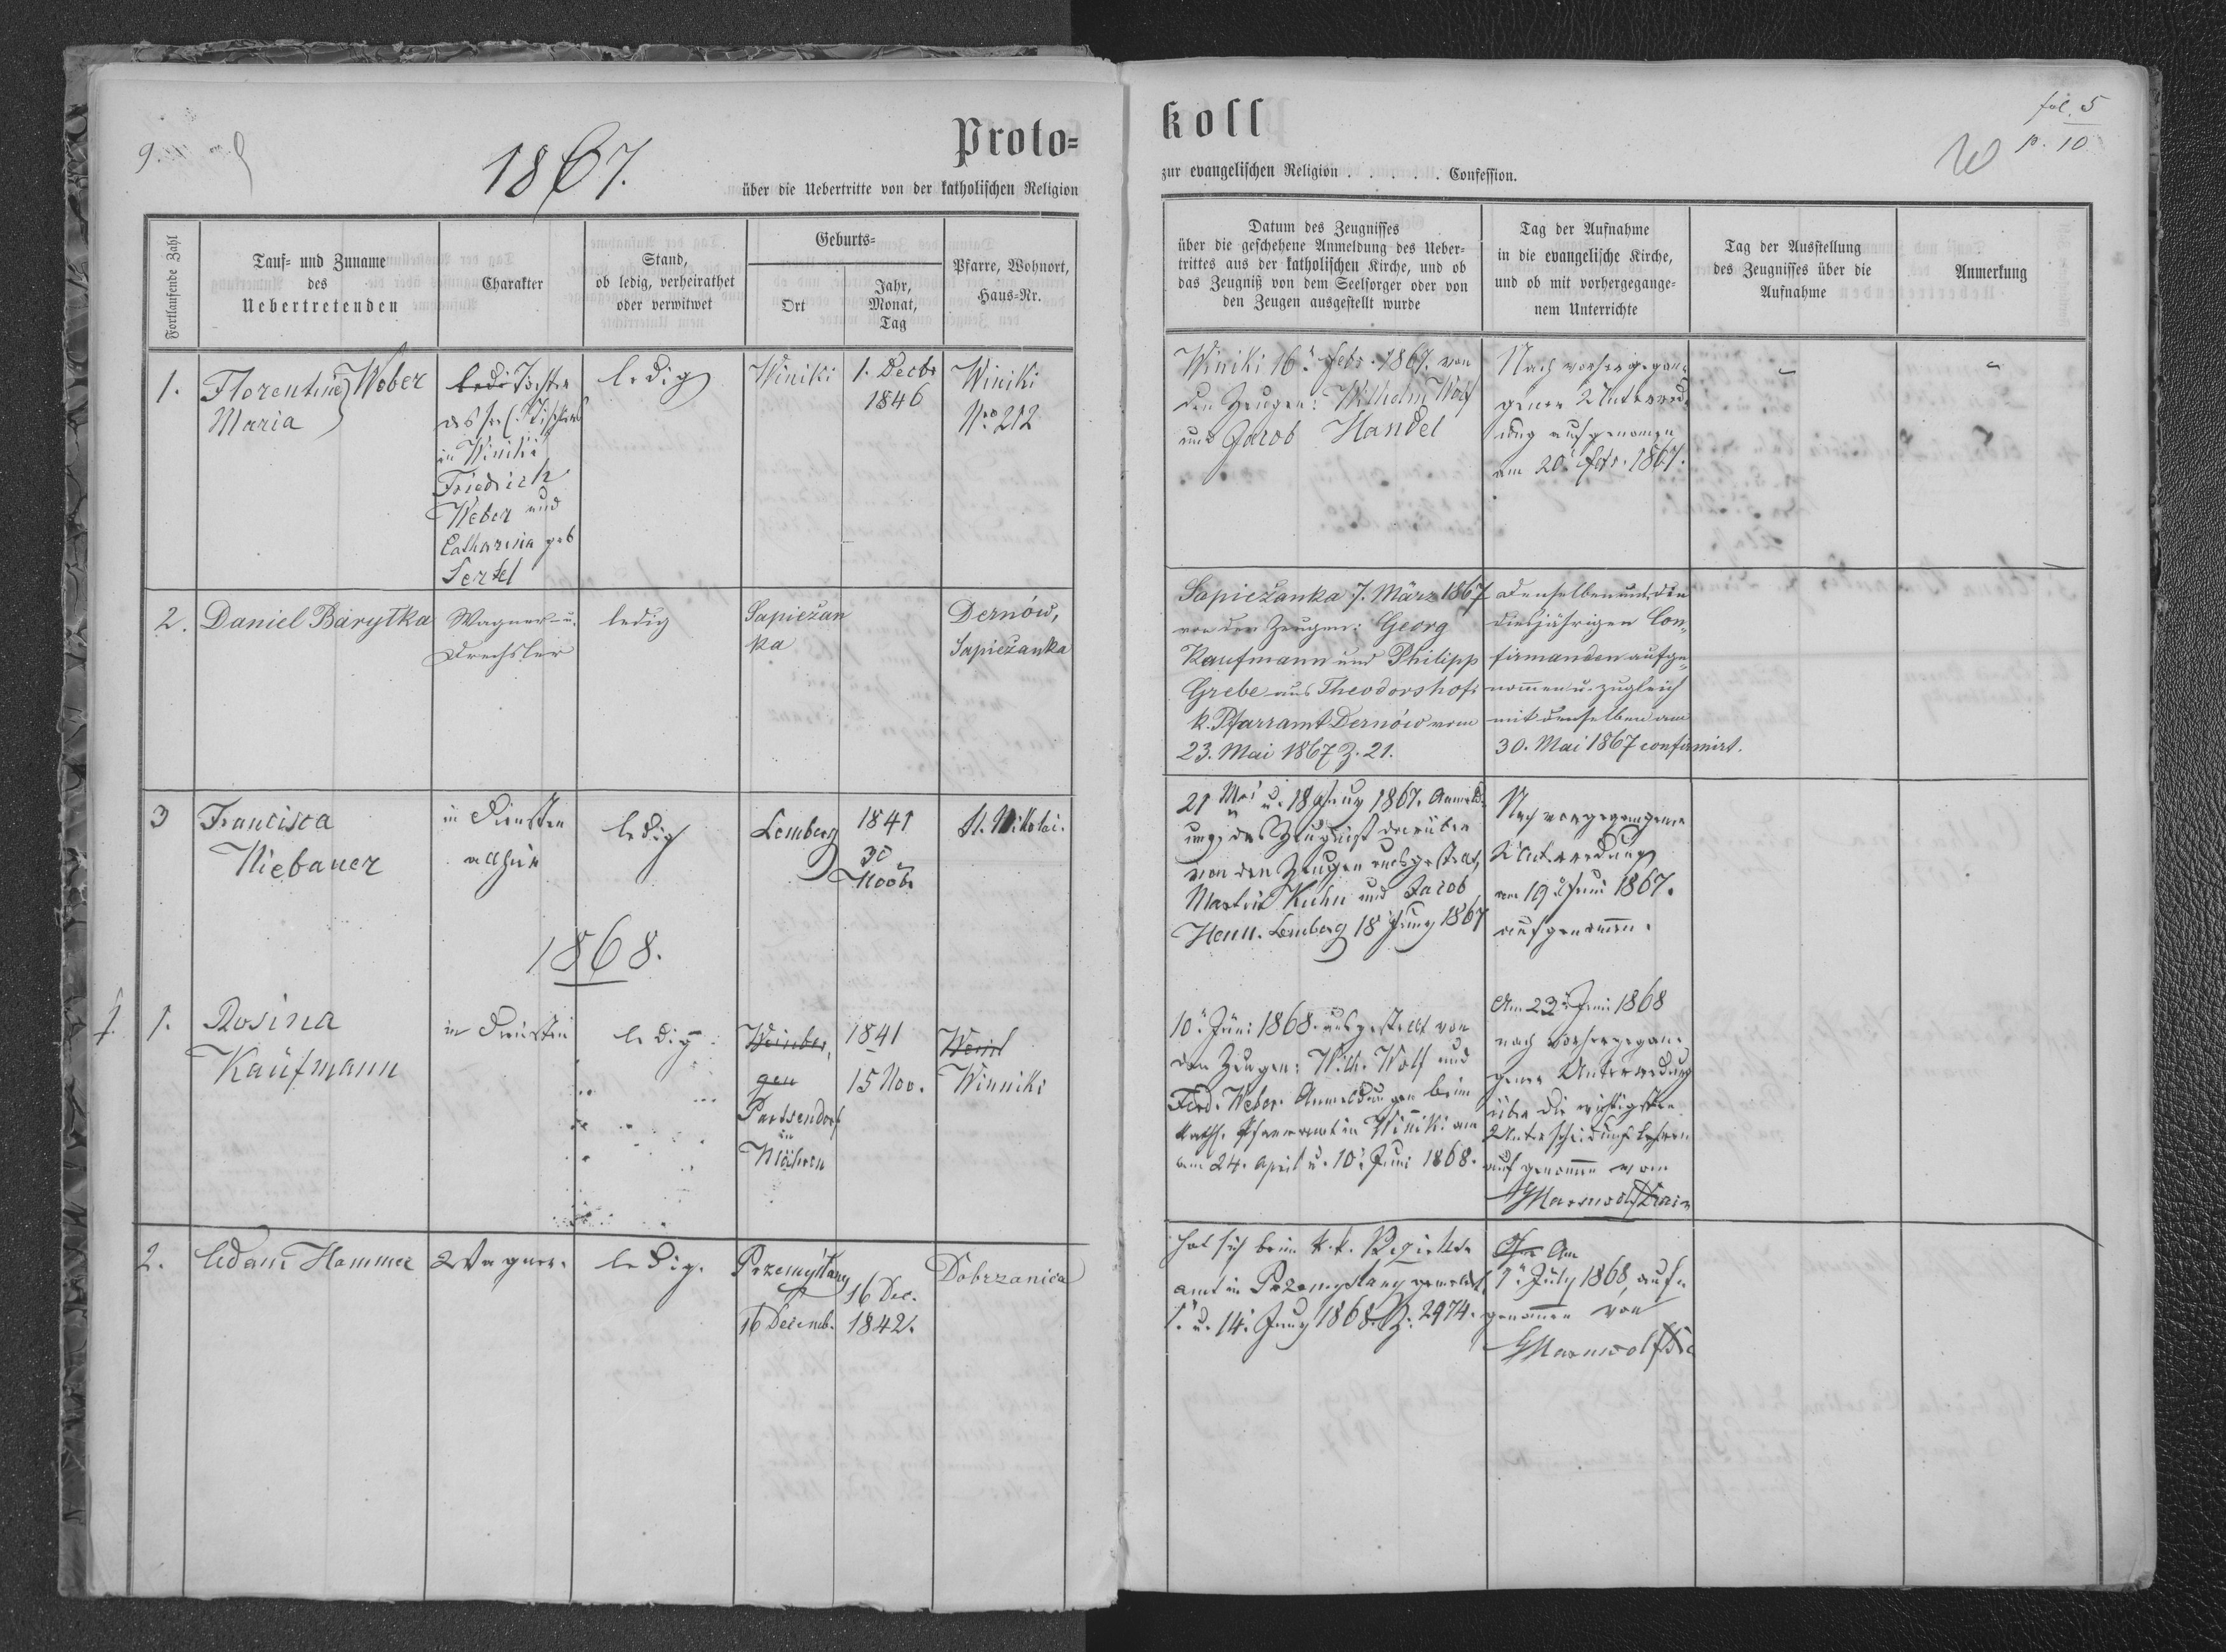 9.
1867.
Proto-
über die Uebertritte von der katholischen Religion
Fortlaufende Zahl
Tauf- und Zuname
des
Uebertretenden
Charakter
Stand,
ob ledig, verheirathet
oder verwitwet
Geburts-
Ort
Jahr,
Monat,
Tag
Pfarre, Wohnort,
Haus-Nr.
1.
Florentine Weber
Maria
Tochter
des
in Winiki
Friedrich
Weber und
Catharina geb
Sertel
ledig
Winiki
1. Decbr
1846
Winiki
Nro 212
2.
Daniel Barytka
Wagner u.
Drechsler
ledig
Sapieżan
ka
Dernów,
Sapieżanka
3
Francisca
Niebauer
in Diensten
allhier
ledig
Lemberg
1841
30
Novbr
St. Nikolai.
1868.
1.
1.
Rosina
Kaufmann
in Diensten
ledig
Weinber,
gen
Partsendorf
in
Mähren
1841
15 Nov.
Weinl
Winniki
2.
Adam Hammer
Wagner.
ledig.
Przemyślany
16 Decemb.
16 Dec.
1842.
Dobrzanica
koll
fol. 5
p. 10
zur evangelischen Religion . . . . . Confession.
Datum des Zeugnisses
über die geschehene Anmeldung des Ueber-
trittes aus der katholischen Kirche, und ob
das Zeugniß von dem Seelsorger oder von
den Zeugen ausgestellt wurde
Tag der Aufnahme
in die evangelische Kirche,
und ob mit vorhergegange-
nem Unterrichte
Tag der Ausstellung
des Zeugnisses über die
Aufnahme
Anmerkung
Winiki 16. Febr. 1867. von
den Zeugen: Wilhelm Wolf
und Jacob Handel
Nach vorhergegan-
gener Unterred-
ung aufgenomen
am 20. Febr. 1867.
Sapieżanka 7. März 1867
von den Zeugen: Georg
Kaufmann und Philipp
Grebe aus Theodorshof.
k. Pfarramt Dernów vom
23. Mai 1867 Z. 21.
Denselben mit den
diesjährigen Con-
firmanden aufge-
nommen u. zugleich
mit denselben am
30. Mai 1867 confirmirt.
21 Mai u. 18 Juny 1867. Anmeld-
ung, das Zeugnist darüber
von den Zeugen ausgestellt,
Martin Kuhn und Jacob
Henn. Lemberg 18 Juny 1867
Nach vorgegangener
Unterredung
am 19 Juni 1867.
aufgenommen.
10. Juni 1868. ausgestellt von
den Zeugen: Wilh. Wolf und
Ferd. Weber. Anmeldungen beim
kath. Pfarramt in Winiki am
am 24. April u. 10. Juni 1868.
Am 23. Juni 1868
nach vorhergegan-
gener Unterredung
über die wichtigsten
Unterscheidungslehren
aufgenommen vom
hat sich beim k. k. Bezirks-
amt in Przemyślany gemeldet,
1. u. 14. Juny 1868. Z: 2974.
Am
1. July 1868, auf-
genommen von